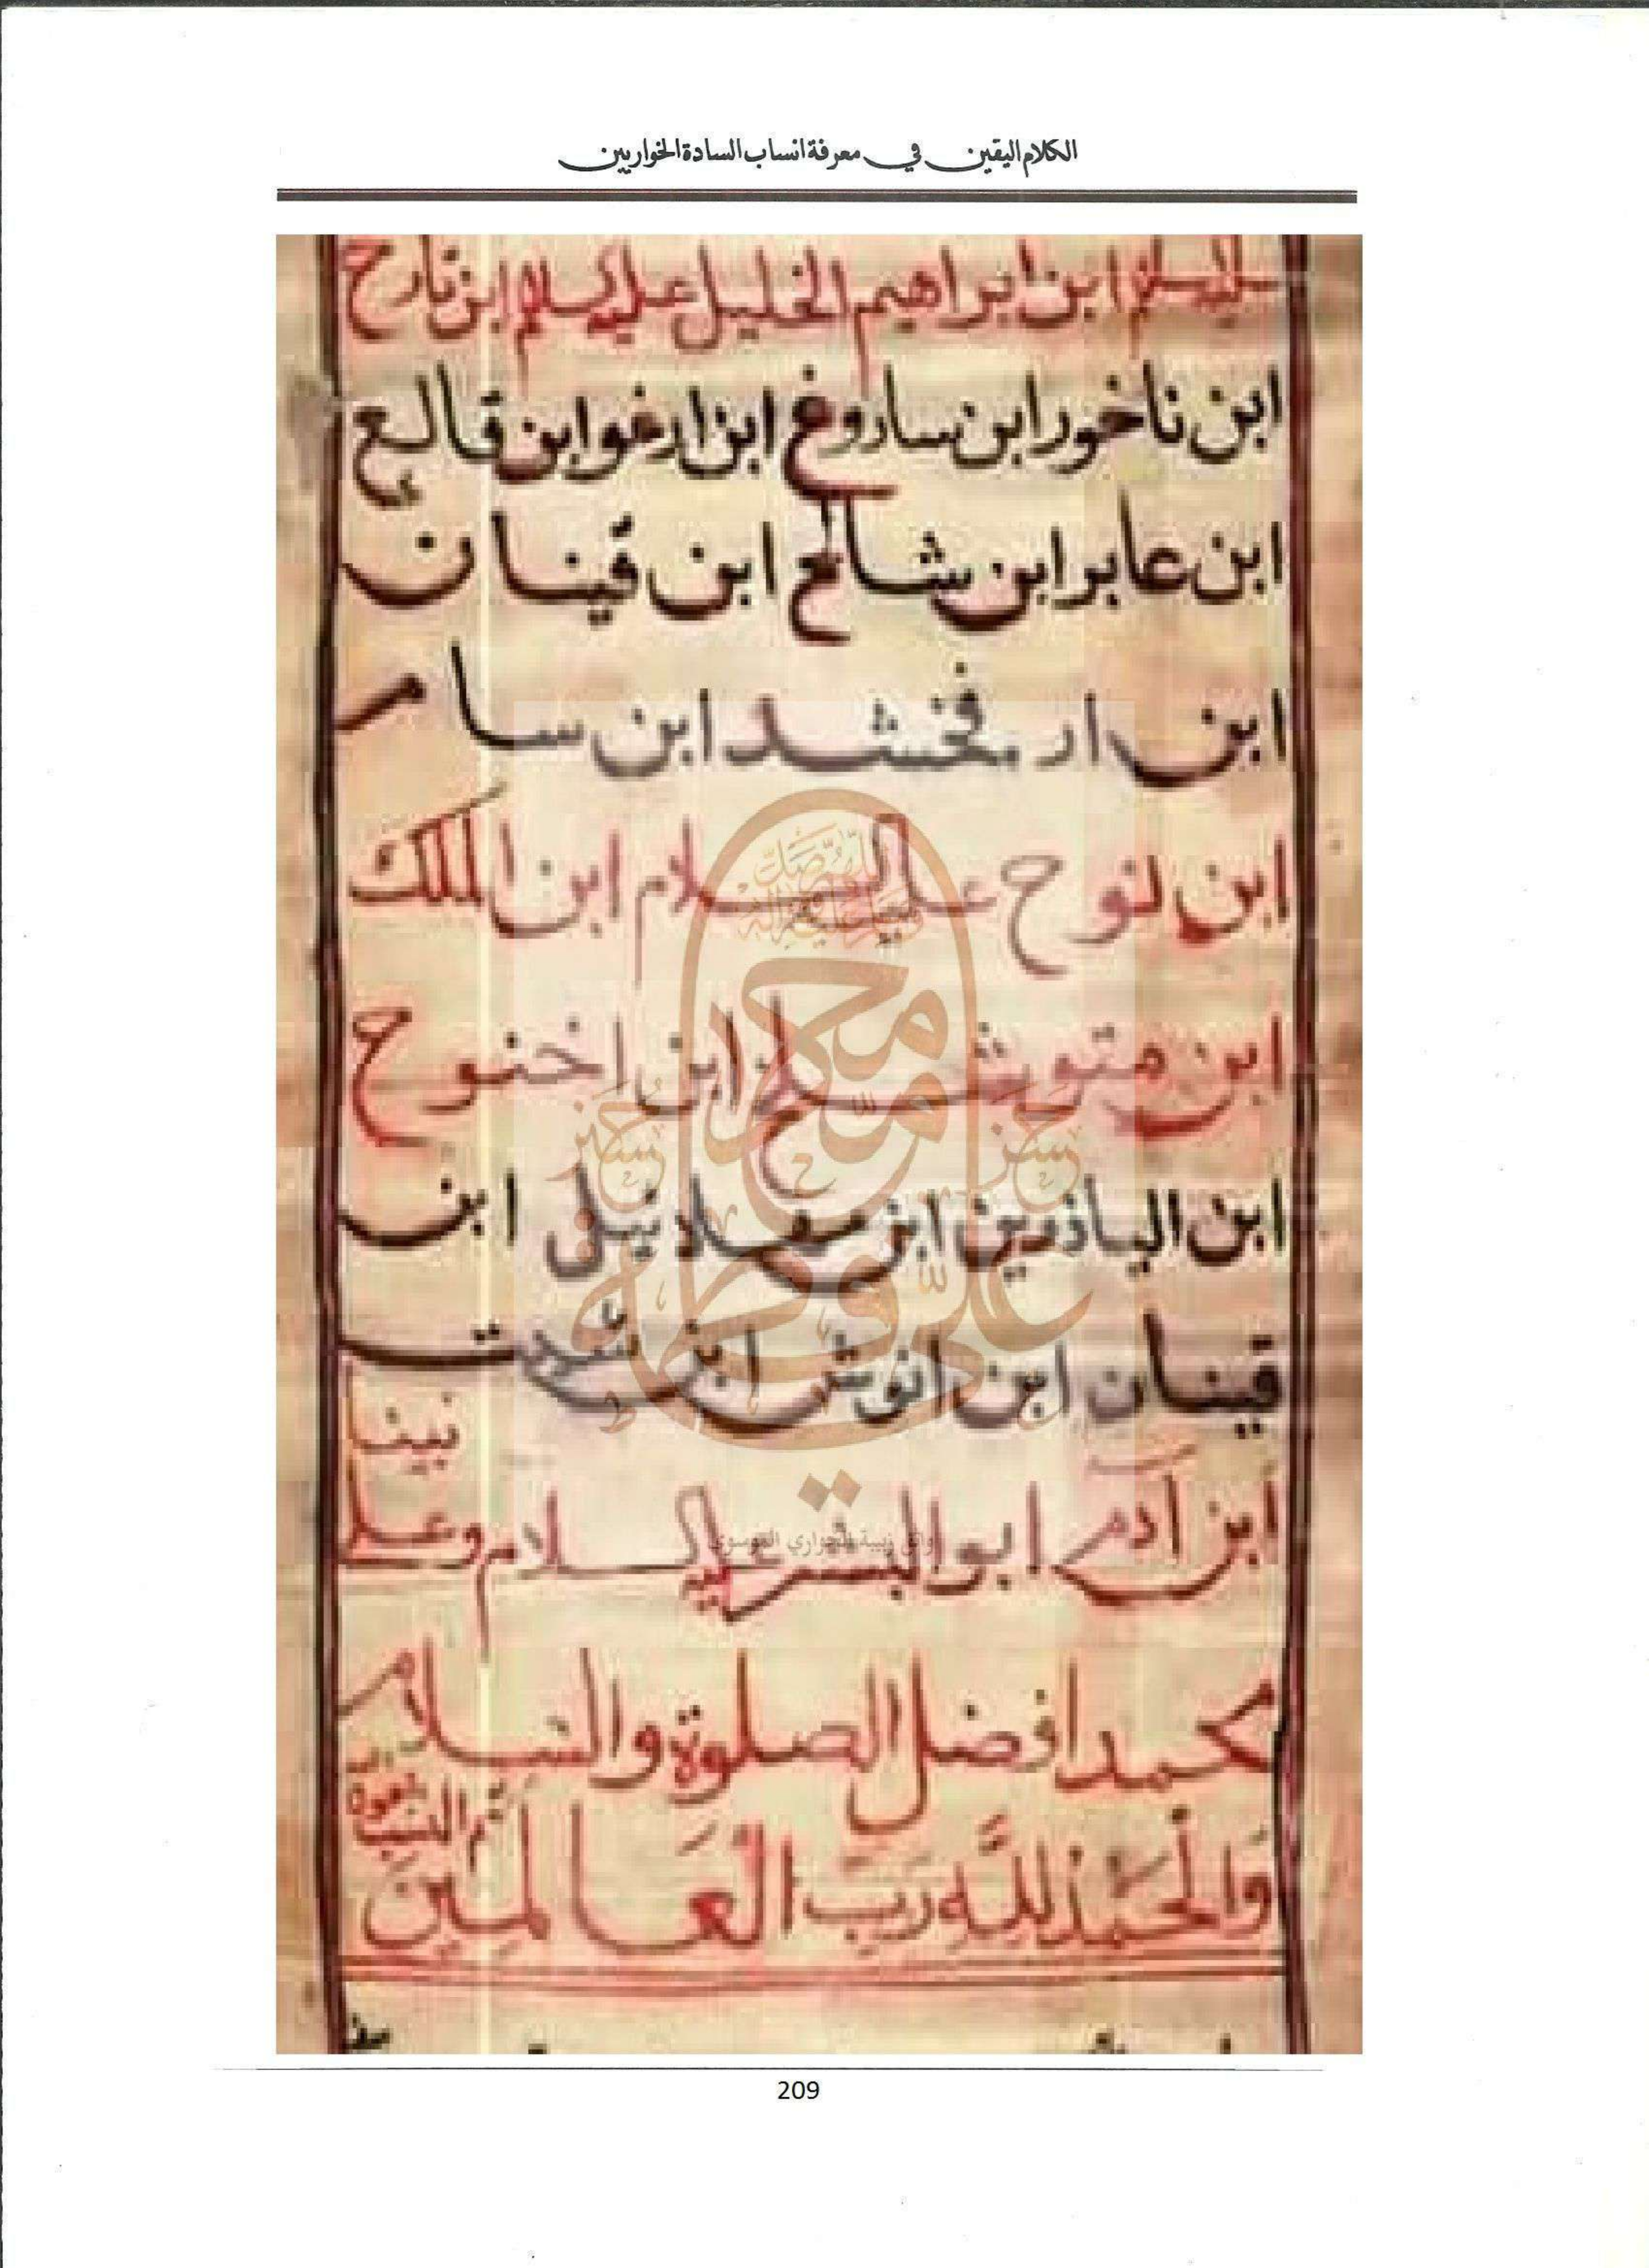 الكلام اليقين في معرفة انساب السادة الخواريين
عليه السلام ابن ابراهيم الخليل عليه السلام ابن تارح
ابن ناخور ابن ساروغ ابن ارغو ابن قالع
ابن عابر ابن شالخ ابن قينان
ابن ارفخشد ابن سام
ابن نوح عليه السلام ابن الملك
ابن متوشلخ ابن اخنوخ
ابن الياذمين ابن مهلائيل ابن
قينان ابن انوش ابن شيت
نبينا
ابن آدم ابو البشر عليه السلام وعلى
محمد افضل الصلوة والسلام
تم النسب
وَالحَمْدُ لِلَّهِ رَبِّ العَالَمِينَ
209